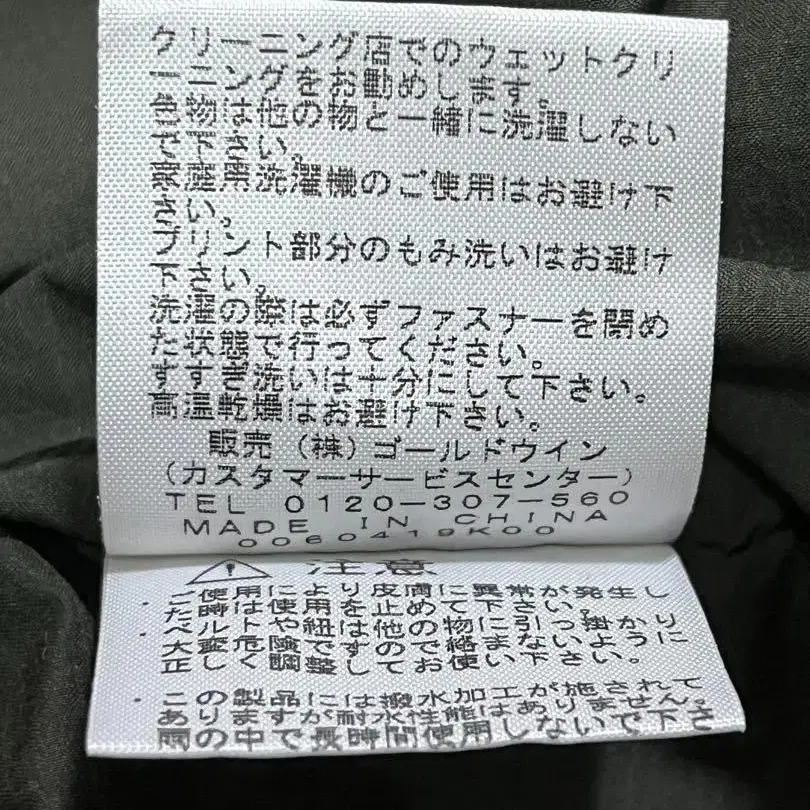 クリーニング店でのウェットクリ
ーニングをお勧めします。
色物は他の物と一緒に洗濯しない
で下さい。
家庭用洗濯機のご使用はお避け下
さい。
プリント部分のもみ洗いはお避け
下さい。
洗濯の際は必ずファスナーを閉め
た状態で行ってください。
すすぎ洗いは十分にして下さい。
高温乾燥はお避け下さい。
販売(株)ゴールドウイン
(カスタマーサービスセンター)
TEL 0120-307-560
MADE IN CHINA
0060419K00
注意
・ご使用により皮膚に異常が発生し
た時は使用を止めて下さい。
・ベルトや紐は他の物に引っ掛かり
大変危険ですので絡まないように
正しく調整してお使い下さい。
・この製品には撥水加工が施されて
ありますが耐水性能はありません。
雨の中で長時間使用しないで下さ